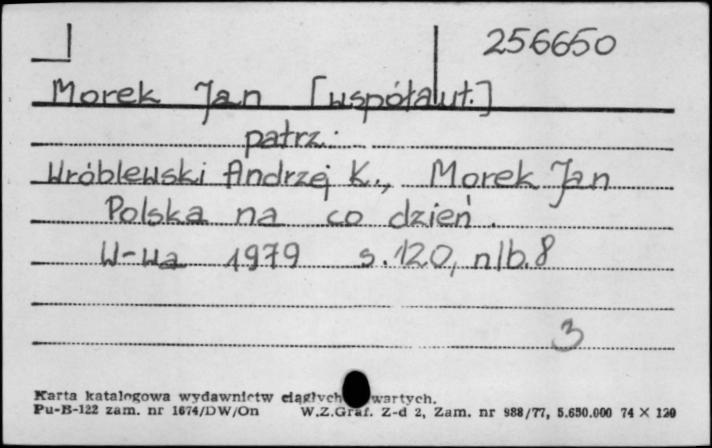 256650
Morek Jan [współaut.]
patrz:
Wróblewski Andrzej K., Morek Jan
Polska na co dzień.
W-wa 1979 s. 120, nlb. 8
3
Karta katalogowa wydawnictw ciągłych wartych.
Pu-B-122 zam. nr 1674/DW/On W.Z.Graf. Z-d 2, Zam. nr 988/77, 5.650.000 74 × 120